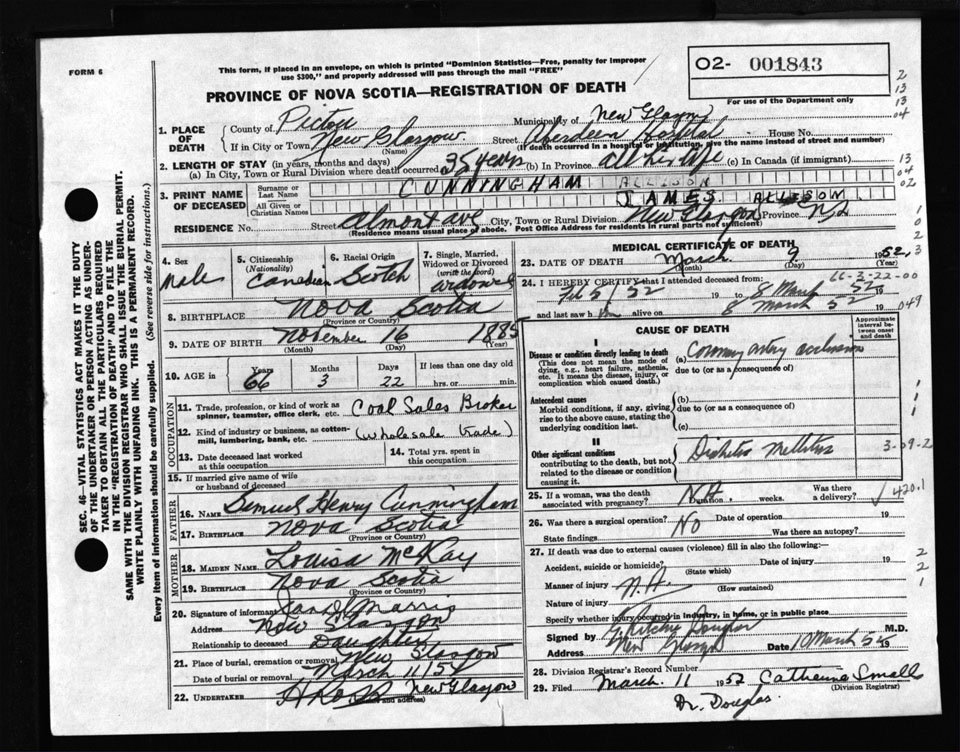 FORM 6
This form, if placed in an envelope, on which is printed "Dominion Statistics—Free, penalty for improper
use $300," and properly addressed will pass through the mail "FREE"
02- 001843
For use of the Department only
PROVINCE OF NOVA SCOTIA—REGISTRATION OF DEATH
1. PLACE OF DEATH
County of Pictou Municipality of New Glasgow
If in City or Town New Glasgow (Name) Street Aberdeen Hospital House No.
(If death occurred in a hospital or institution, give the name instead of street and number)
2. LENGTH OF STAY (in years, months and days)
(a) In City, Town or Rural Division where death occurred 35 years (b) In Province all his life (c) In Canada (if immigrant)
3. PRINT NAME OF DECEASED
Surname or Last Name CUNNINGHAM ALLISON
All Given or Christian Names JAMES ALLISON
RESIDENCE No. Street Almont ave City, Town or Rural Division New Glasgow Province N.S
(Residence means usual place of abode. Post Office Address for residents in rural parts not sufficient)
4. Sex Male
5. Citizenship (Nationality) Canadian
6. Racial Origin Scotch
7. Single, Married, Widowed or Divorced (write the word) widowed
8. BIRTHPLACE Nova Scotia
(Province or Country)
9. DATE OF BIRTH November 16 1885
(Month) (Day) (Year)
10. AGE in Years 66 Months 3 Days 22 If less than one day old hrs. or min.
11. Trade, profession, or kind of work as spinner, teamster, office clerk, etc. Coal Sales Broker
12. Kind of industry or business, as cotton-mill, lumbering, bank, etc. (Wholesale trade)
13. Date deceased last worked at this occupation
14. Total yrs. spent in this occupation
15. If married give name of wife or husband of deceased
FATHER
16. NAME Henry Cunningham
17. BIRTHPLACE Nova Scotia
(Province or Country)
MOTHER
18. MAIDEN NAME Louisa McKay
19. BIRTHPLACE Nova Scotia
(Province or Country)
20. Signature of informant
Address New Glasgow
Relationship to deceased Daughter
21. Place of burial, cremation or removal New Glasgow
Date of burial or removal March 11/52
22. UNDERTAKER New Glasgow
(Name and address)
MEDICAL CERTIFICATE OF DEATH
23. DATE OF DEATH March 9 1952
(Month) (Day) (Year)
24. I HEREBY CERTIFY that I attended deceased from: 66-3-22-00
Feb 5/52 19 to 8 March 52 19
and last saw him alive on 8 March 52 19 049
CAUSE OF DEATH
Approximate interval between onset and death
I
Disease or condition directly leading to death
(This does not mean the mode of dying, e.g., heart failure, asthenia, etc. It means the disease, injury, or complication which caused death.)
(a) Coronary artery occlusion
due to (or as a consequence of)
Antecedent causes
Morbid conditions, if any, giving rise to the above cause, stating the underlying condition last.
(b)
due to (or as a consequence of)
(c)
II
Other significant conditions
contributing to the death, but not related to the disease or condition causing it.
Diabetes Mellitus
3-09-2
25. If a woman, was the death associated with pregnancy? NA Duration, weeks. Was there a delivery? 420.1
26. Was there a surgical operation? No Date of operation 19
State findings Was there an autopsy?
27. If death was due to external causes (violence) fill in also the following:
Accident, suicide or homicide? (State which) Date of injury 19
Manner of injury N.A. (How sustained)
Nature of injury
Specify whether injury occurred in industry, in home, or in public place
Signed by Douglas M.D.
Address New Glasgow Date 10 March 52 19
28. Division Registrar's Record Number
29. Filed March 11 1952 Catherine Small
(Division Registrar)
Dr. Douglas
SEC. 46—VITAL STATISTICS ACT MAKES IT THE DUTY
OF THE UNDERTAKER OR PERSON ACTING AS UNDER-
TAKER TO OBTAIN ALL THE PARTICULARS REQUIRED
IN THE "REGISTRATION OF DEATH" AND TO FILE THE
SAME WITH THE DIVISION REGISTRAR WHO SHALL ISSUE THE BURIAL PERMIT.
WRITE PLAINLY WITH UNFADING INK. THIS IS A PERMANENT RECORD.
Every item of information should be carefully supplied. (See reverse side for instructions.)
2
13
13
04
13
04
02
1
0
2
3
1
1
1
2
2
1